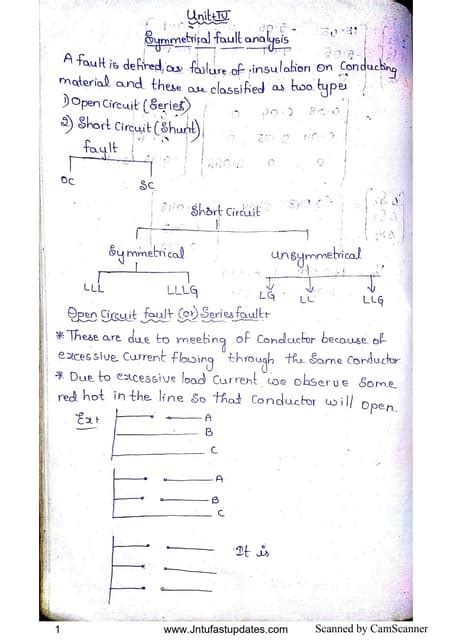 Unit-IV
Symmetrical fault analysis
A fault is defined as failure of insulation on conducting
material and these are classified as two types
1) Open Circuit (Series)
2) Short Circuit (Shunt)
fault
OC
SC
Short Circuit
Symmetrical
unsymmetrical
LLL
LLLG
LG
LL
LLG
Open Circuit fault (or) Series fault:
* These are due to meeting of Conductor because of
excessive current flowing through the same conductor
* Due to excessive load current we observe some
red hot in the line so that conductor will open.
Ex:
A
B
C
A
B
C
It is
1
www.Jntufastupdates.com
Scanned by CamScanner